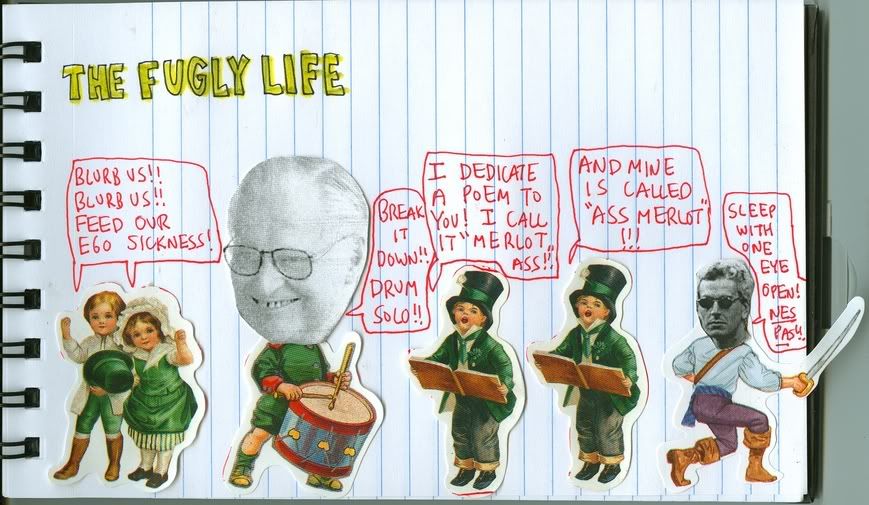 THE FUGLY LIFE
BLURB US!!
BLURB US!!
FEED OUR
EGO SICKNESS!
BREAK
IT
DOWN!!
DRUM
SOLO!!
I DEDICATE
A POEM TO
YOU! I CALL
IT "MERLOT
ASS!!"
AND MINE
IS CALLED
"ASS MERLOT"
!!!
SLEEP
WITH
ONE
EYE
OPEN!
NES
PAS!!